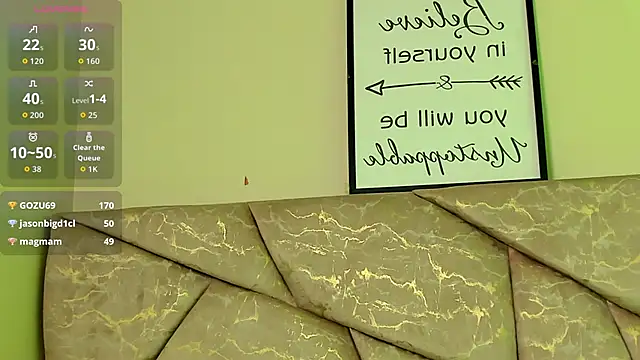 22s
30s
120
160
40s
Level 1-4
200
25
10~50s
Clear the
Queue
38
1K
GOZU69 170
jasonbigd1cl 50
magmam 49
Believe
in yourself
&
you will be
Unstoppable